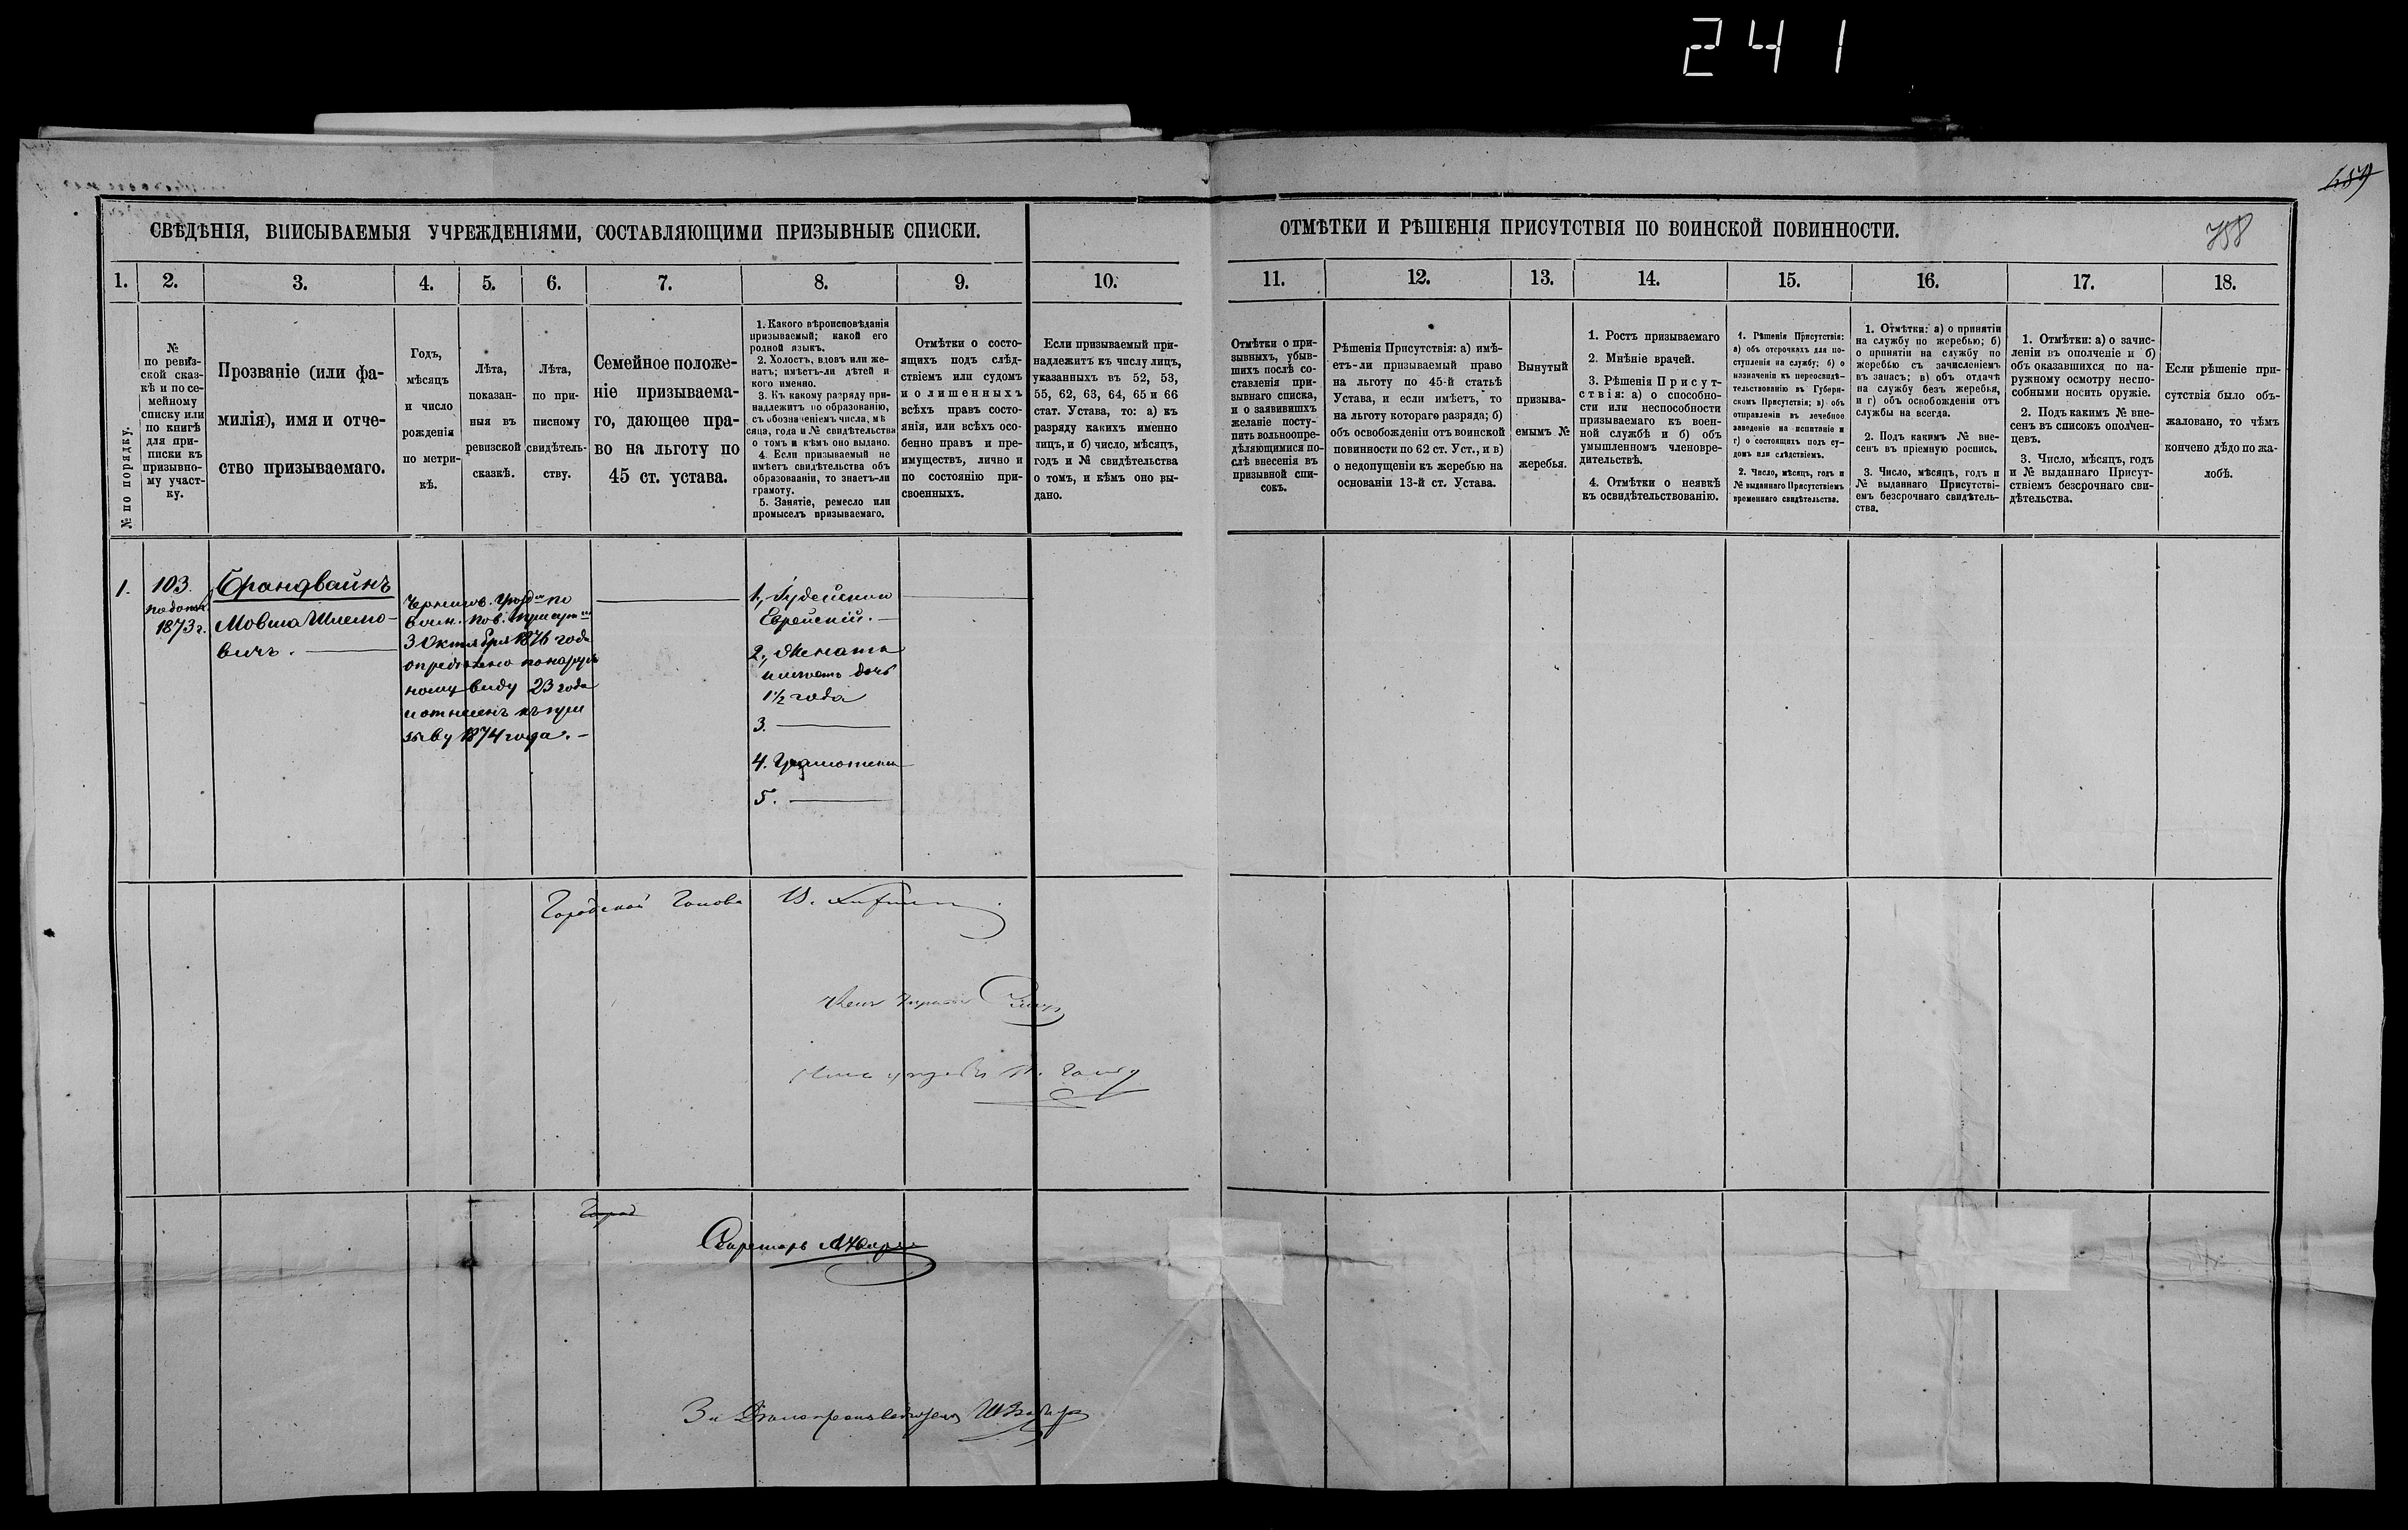 241
459
758
СВѢДѢНІЯ, ВПИСЫВАЕМЫЯ УЧРЕЖДЕНІЯМИ, СОСТАВЛЯЮЩИМИ ПРИЗЫВНЫЕ СПИСКИ.
ОТМѢТКИ И РѢШЕНІЯ ПРИСУТСТВІЯ ПО ВОИНСКОЙ ПОВИННОСТИ.
1.
2.
3.
4.
5.
6.
7.
8.
9.
10.
11.
12.
13.
14.
15.
16.
17.
18.
№ по порядку.
№
по ревиз-
ской сказ-
кѣ и по се-
мейному
списку или
по книгѣ
для при-
писки къ
призывно-
му участ-
ку.
Прозваніе (или фа-
милія), имя и отче-
ство призываемаго.
Годъ,
мѣсяцъ
и число
рожденія
по метри-
кѣ.
Лѣта,
показан-
ныя въ
ревизской
сказкѣ.
Лѣта,
по при-
писному
свидѣтель-
ству.
Семейное положе-
ніе призываема-
го, дающее пра-
во на льготу по
45 ст. устава.
1. Какого вѣроисповѣданія
призываемый; какой его
родной языкъ.
2. Холостъ, вдовъ или же-
натъ; имѣетъ-ли дѣтей и
кого именно.
3. Къ какому разряду при-
надлежитъ по образованію,
съ обозначеніемъ числа, мѣ-
сяца, года и № свидѣтельства
о томъ и кѣмъ оно выдано.
4. Если призываемый не
имѣетъ свидѣтельства объ
образованіи, то знаетъ-ли
грамоту.
5. Занятіе, ремесло или
промыселъ призываемаго.
Отмѣтки о состо-
ящихъ подъ слѣд-
ствіемъ или судомъ
и о лишенныхъ
всѣхъ правъ состо-
янія, или всѣхъ осо-
бенно правъ и пре-
имуществъ, лично и
по состоянію при-
своенныхъ.
Если призываемый при-
надлежитъ къ числу лицъ,
указанныхъ въ 52, 53,
55, 62, 63, 64, 65 и 66
стат. Устава, то: а) къ
разряду какихъ именно
лицъ, и б) число, мѣсяцъ,
годъ и № свидѣтельства
о томъ, и кѣмъ оно вы-
дано.
Отмѣтки о при-
зывныхъ, убыв-
шихъ послѣ со-
ставленія при-
зывнаго списка,
и о заявившихъ
желаніе посту-
пить вольноопре-
дѣляющимися по-
слѣ внесенія въ
призывной спи-
сокъ.
Рѣшенія Присутствія: а) имѣ-
етъ-ли призываемый право
на льготу по 45-й статьѣ
Устава, и если имѣетъ, то
на льготу котораго разряда; б)
объ освобожденіи отъ воинской
повинности по 62 ст. Уст., и в)
о недопущеніи къ жеребью на
основаніи 13-й ст. Устава.
Вынутый
призыва-
емымъ №
жеребья.
1. Ростъ призываемаго
2. Мнѣніе врачей.
3. Рѣшенія Присут-
ствія: а) о способно-
сти или неспособности
призываемаго къ воен-
ной службѣ и б) объ
умышленномъ членовре-
дительствѣ.
4. Отмѣтки о неявкѣ
къ освидѣтельствованію.
1. Рѣшенія Присутствія:
а) объ отсрочкахъ для по-
ступленія на службу; б) о
назначеніи къ переосвидѣ-
тельствованію въ Губерн-
скомъ Присутствіи; в) объ
отправленіи въ лечебное
заведеніе на испытаніе и
г) о состоящихъ подъ су-
домъ или слѣдствіемъ.
2. Число, мѣсяцъ, годъ и
№ выданнаго Присутствіемъ
временнаго свидѣтельства.
1. Отмѣтки: а) о принятіи
на службу по жеребью; б)
о принятіи на службу по
жеребью съ зачисленіемъ
въ запасъ; в) объ отдачѣ
на службу безъ жеребья,
и г) объ освобожденіи отъ
службы на всегда.
2. Подъ какимъ № вне-
сенъ въ пріемную роспись.
3. Число, мѣсяцъ, годъ и
№ выданнаго Присутстві-
емъ безсрочнаго свидѣтель-
ства.
1. Отмѣтки: а) о зачис-
леніи въ ополченіе и б)
объ оказавшихся по на-
ружному осмотру неспо-
собными носить оружіе.
2. Подъ какимъ № вне-
сенъ въ списокъ ополчен-
цевъ.
3. Число, мѣсяцъ, годъ
и № выданнаго Присут-
ствіемъ безсрочнаго сви-
дѣтельства.
Если рѣшеніе при-
сутствія было объ-
жаловано, то чѣмъ
кончено дѣло по жа-
лобѣ.
1.
103.
1873 г.
Брандвайнъ
Мовша Шлемо-
вичъ.
Чернигов. по
Воин. Пов. Присут
3 Октября 1876 года
опредѣлено по наруж
ному виду 23 года
и отнесенъ къ при
зыву 1874 года.
1., Іудейскаго
Еврейскій.
2., Женатъ
имѣетъ дочь
1½ года
3.
4. Грамотенъ
5.
Городской Голова
Член Управы
Член управы
Город
Секретарь
За Дѣлопроизводителя